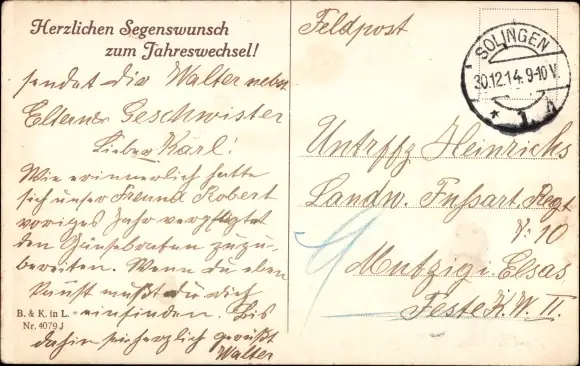 Herzlichen Segenswunsch
zum Jahreswechsel!
sendet dir Walter nebst
Eltern u Geschwister
Lieber Karl!
Wie erinnerlich hatte
sich unser Freund Robert
voriges Jahr verpflichtet
den Gänsebraten zuzu-
bereiten. Wenn du eben
kannst mußt du dich
einfinden. Bis
dahin sei herzlich gegrüßt
Walter
B. & K. in L.
Nr. 4079 J
Feldpost
SOLINGEN
30.12.14. 9-10 V.
* 1. A
Untrffz Heinrichs
Landw. Fussart Regt
10
Mutzig i. Elsas
Feste K. W. II.